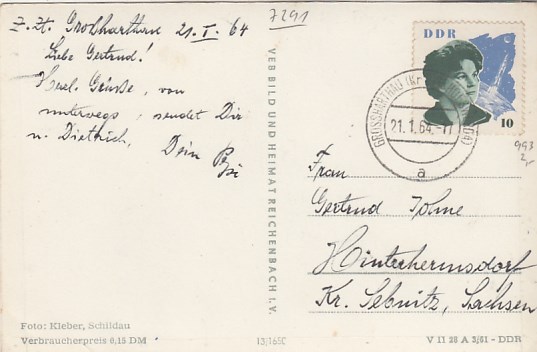 7291
Z. Zt. Großharthau 21.I.64
Liebe Gertrud!
Herzl. Grüße, von
unterwegs, sendet Dir
u. Dietrich, Dein
VEB BILD UND HEIMAT REICHENBACH I. V.
DDR
10
GROSSHARTHAU (Kr
21.1.64.-11
a
993
Frau
Gertrud
Hinterhermsdorf
Kr. Sebnitz, Sachsen
Foto: Kleber, Schildau
Verbraucherpreis 0,15 DM
V 11 28 A 3/61 - DDR